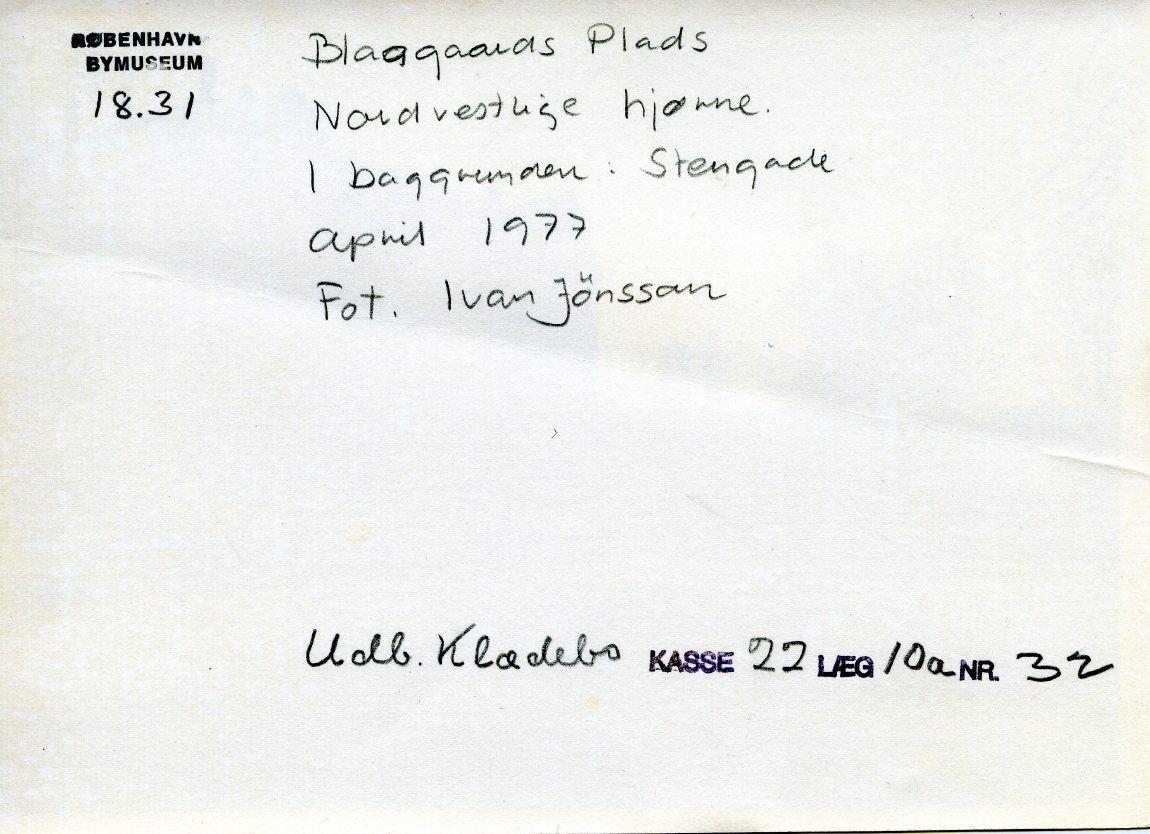 KØBENHAVN
BYMUSEUM
18.31
Blaagaards Plads
Nordvestlige hjørne.
I baggrunden: Stengade
april 1977
Fot. Ivan Jönsson
Udb. Klædebo KASSE 22 LÆG 10a NR. 32